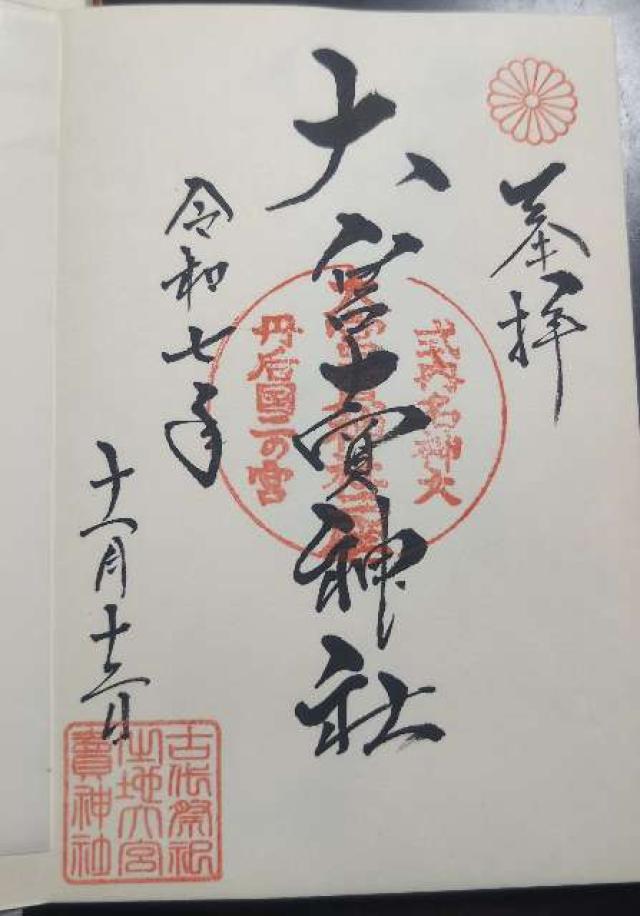 奉拝
大宮賣神社
式内名神大
丹后國二の宮
令和七年
十一月十二日
古代祭祀
之地大宮
賣神社